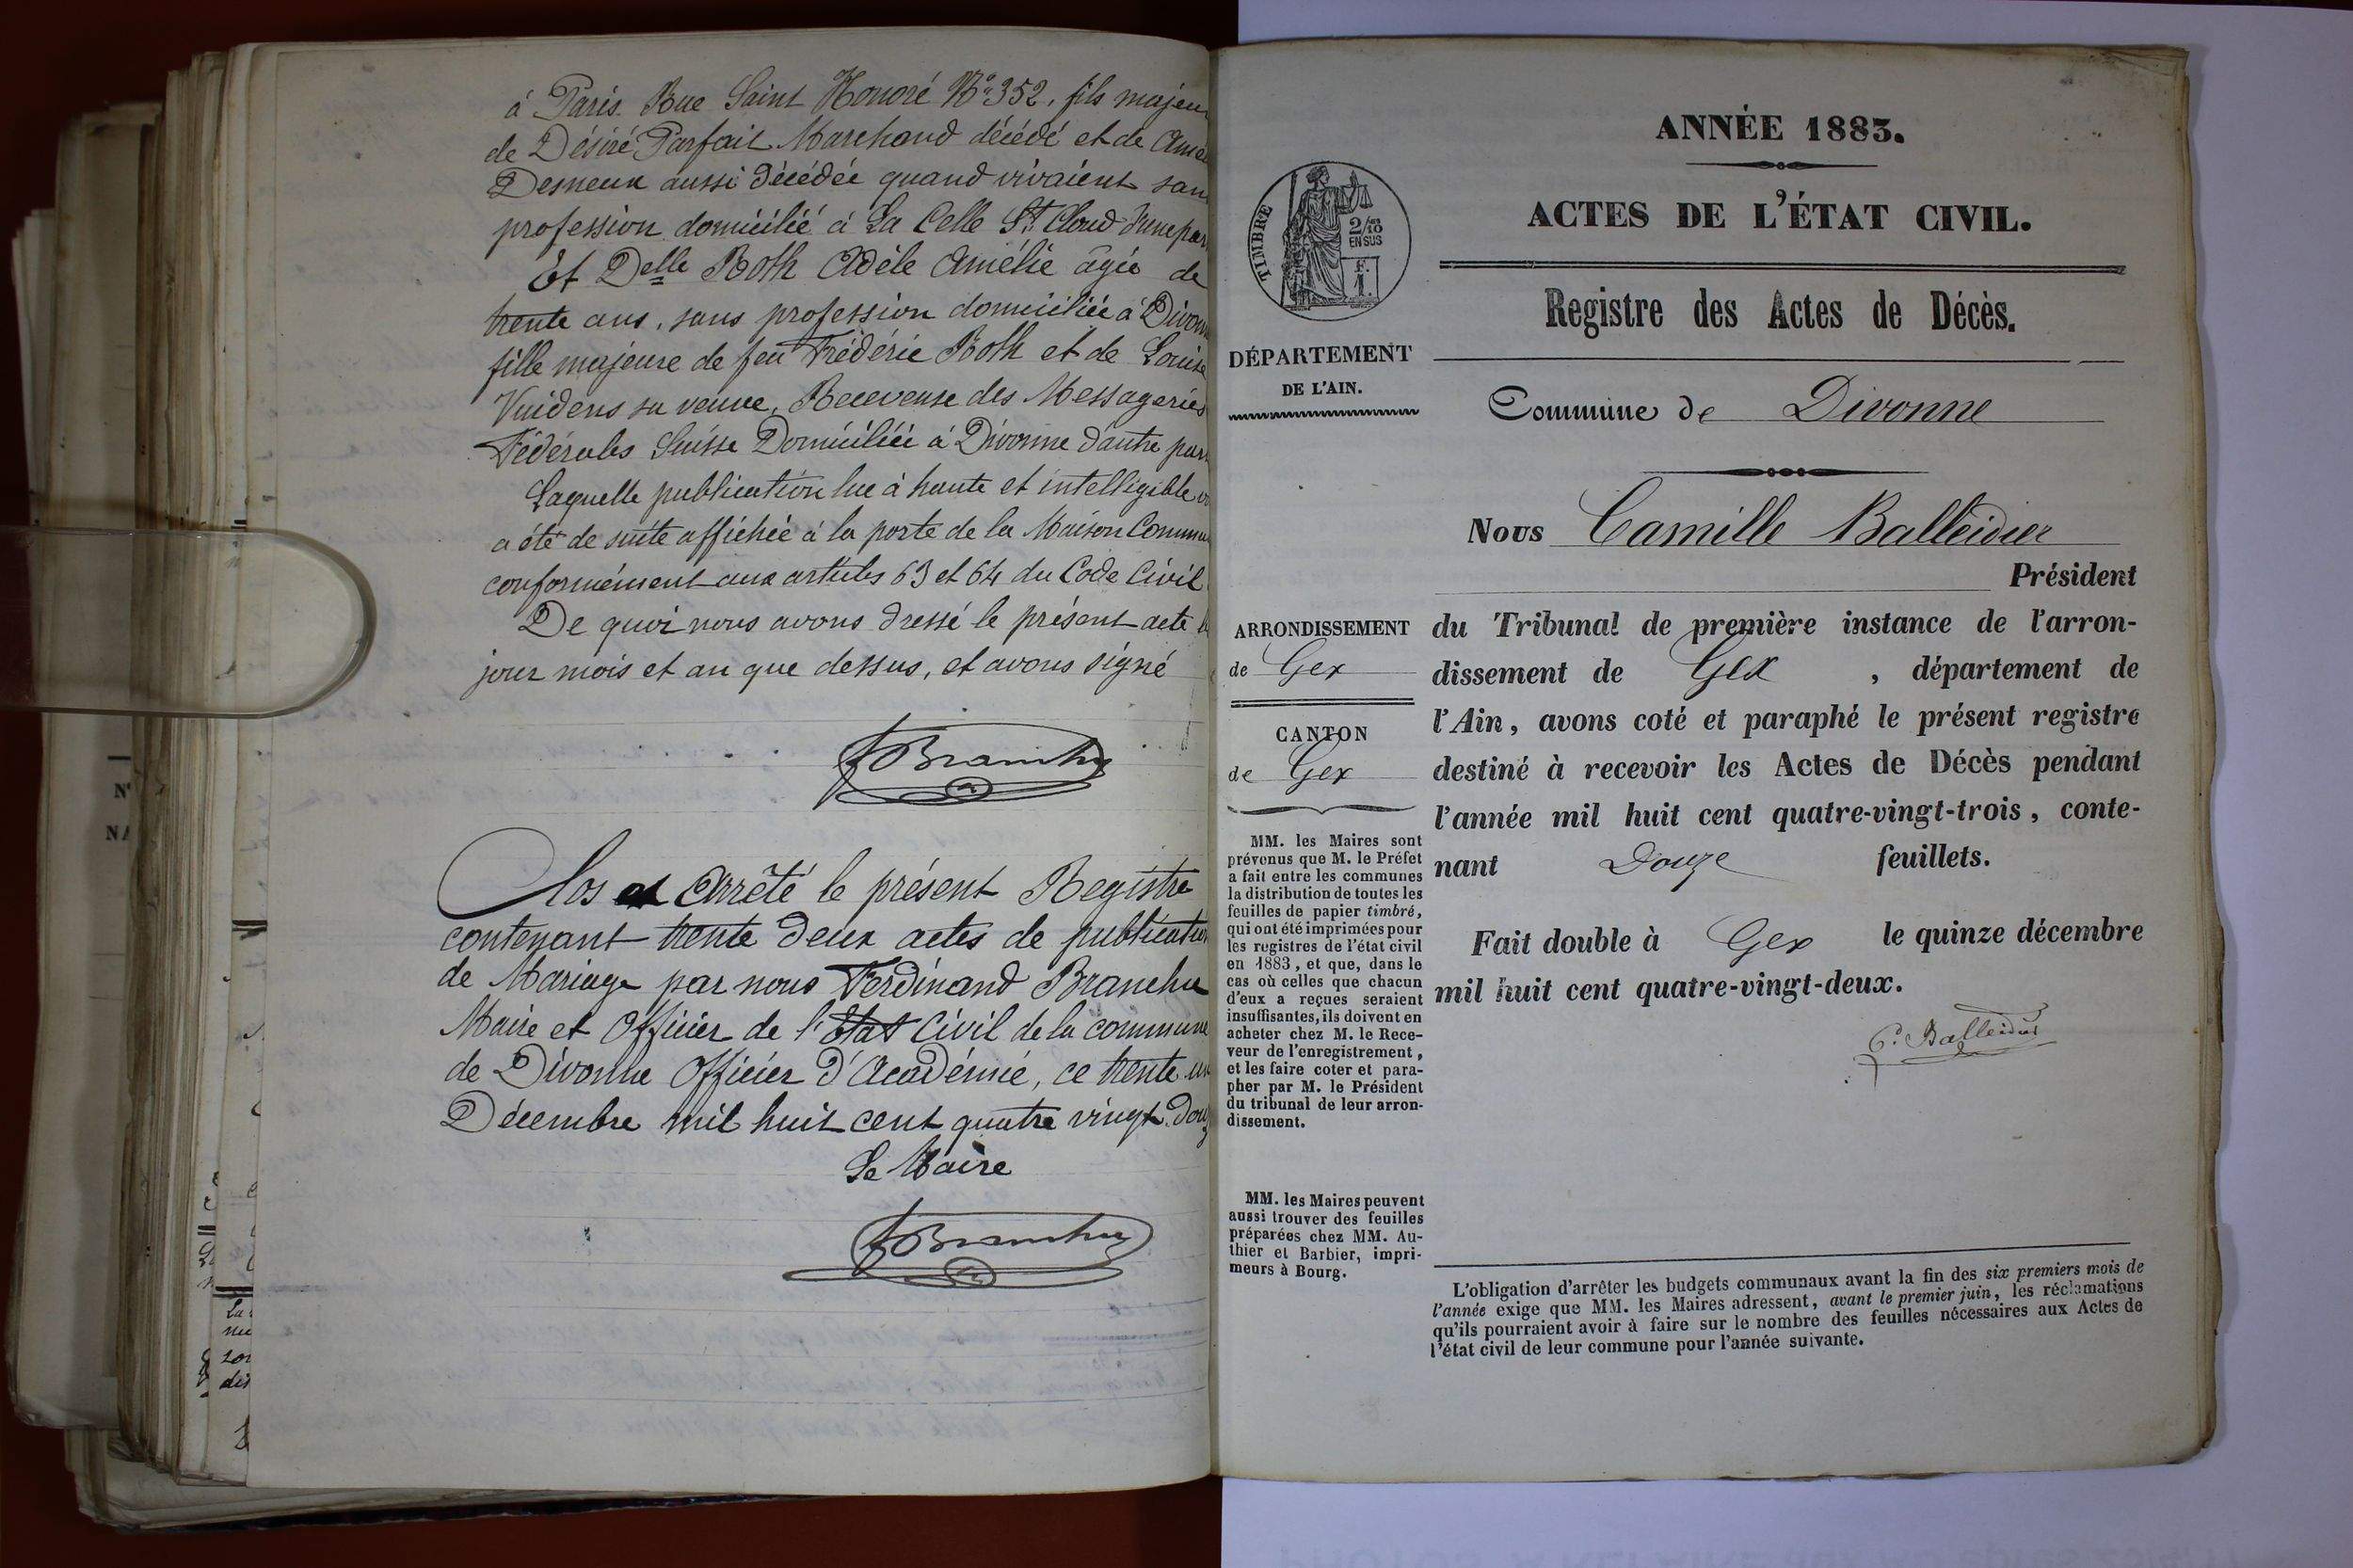 à Paris. Rue Saint Honoré No 352, fils majeu
de Désiré Parfait Marchand décédé et de Amé
Desneux aussi décédée quand vivaient san
profession domicilié à La Celle St Cloud d'une par
Et Delle Roth Adèle Amélie âgée de
trente ans, sans profession domiciliée à Divonn
fille majeure de feu Frédéric Roth et de Louise
Vuidens sa veuve, Receveuse des Messageries
Fédérales Suisse Domiciliée à Divonne d'autre part
Laquelle publication lue à haute et intelligible
a été de suite affichée à la porte de la Maison Commu
conformément aux articles 63 et 64 du Code Civil
De quoi nous avons dressé le présent acte
jour mois et an que dessus, et avons signé
FBranchu
Clos et Arrêté le présent Registre
contenant trente deux actes de publication
de Mariage par nous Ferdinand Branchu
Maire et Officier de l'Etat Civil de la commune
de Divonne Officier d'Académie, ce trente un
Décembre mil huit cent quatre vingt douz
Le Maire
FBranchu
ANNÉE 1883.
ACTES DE L'ÉTAT CIVIL.
Registre des Actes de Décès.
TIMBRE
2/10
EN SUS
F.
1.
DÉPARTEMENT
DE L'AIN.
Commune de Divonne
Nous Camille Balleidier
Président
ARRONDISSEMENT
de Gex
CANTON
de Gex
du Tribunal de première instance de l'arron-
dissement de Gex , département de
l'Ain, avons coté et paraphé le présent registre
destiné à recevoir les Actes de Décès pendant
l'année mil huit cent quatre-vingt-trois, conte-
nant Douze feuillets.
Fait double à Gex le quinze décembre
mil huit cent quatre-vingt-deux.
C. Balleidier
MM. les Maires sont
prévenus que M. le Préfet
a fait entre les communes
la distribution de toutes les
feuilles de papier timbré,
qui ont été imprimées pour
les registres de l'état civil
en 1883, et que, dans le
cas où celles que chacun
d'eux a reçues seraient
insuffisantes, ils doivent en
acheter chez M. le Rece-
veur de l'enregistrement,
et les faire coter et para-
pher par M. le Président
du tribunal de leur arron-
dissement.
MM. les Maires peuvent
aussi trouver des feuilles
préparées chez MM. Au-
thier et Barbier, impri-
meurs à Bourg.
L'obligation d'arrêter les budgets communaux avant la fin des six premiers mois de
l'année exige que MM. les Maires adressent, avant le premier juin, les réclamations
qu'ils pourraient avoir à faire sur le nombre des feuilles nécessaires aux Actes de
l'état civil de leur commune pour l'année suivante.